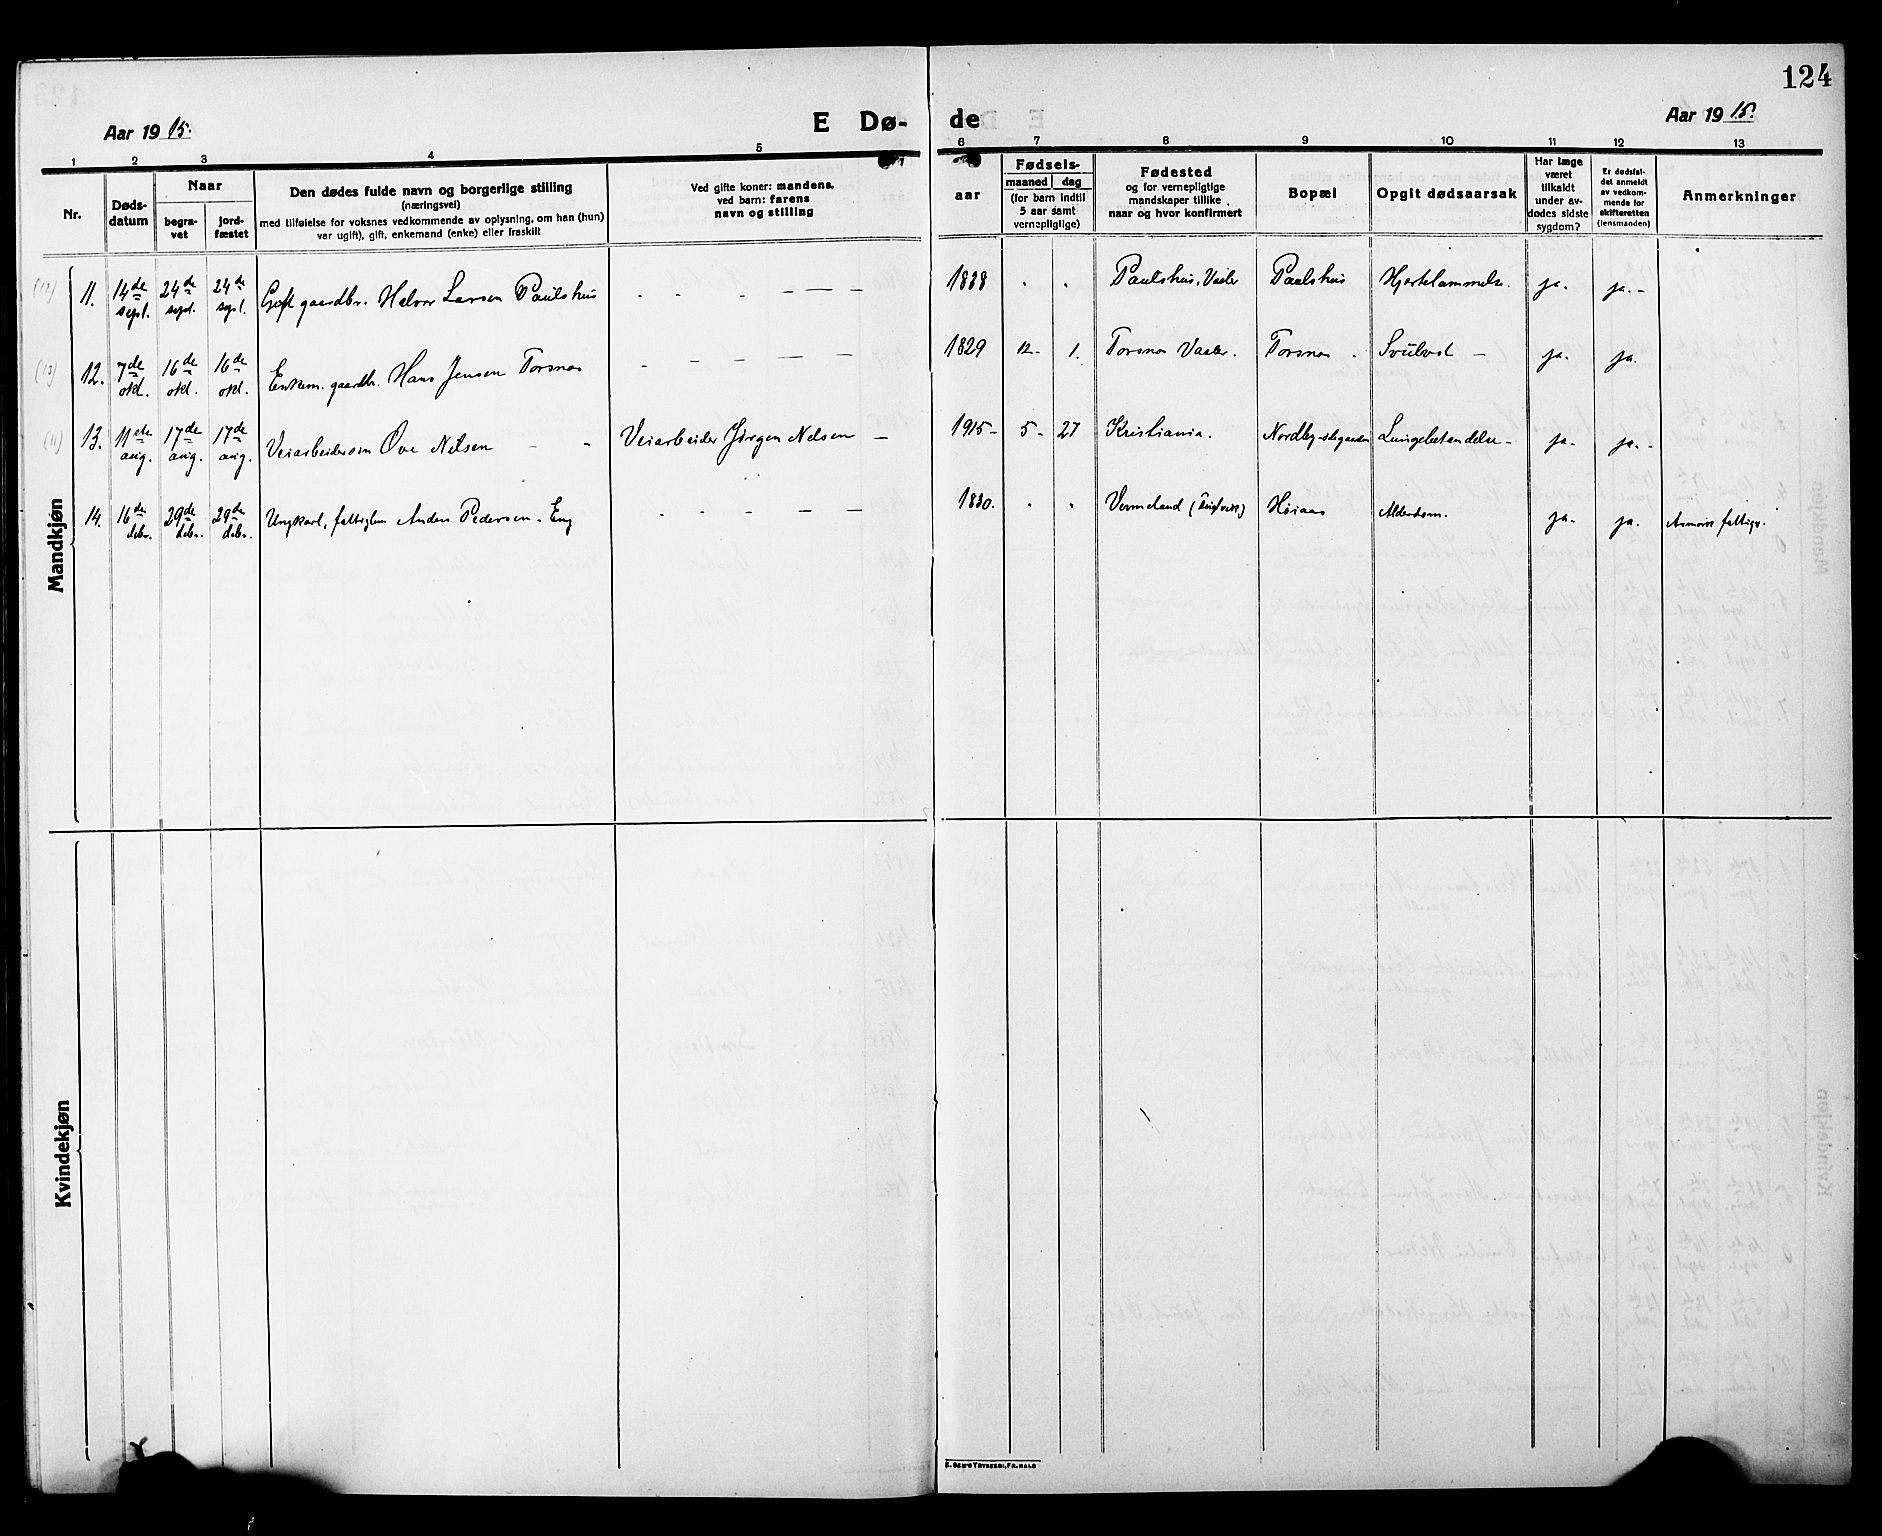 124
Aar 1915.
E Dø-
de
Aar 1915.
1 2 3 4 5 6 7 8 9 10 11 12 13
Nr.
Døds-
datum
Naar
begra-
vet
jord-
fæstet
Den dødes fulde navn og borgerlige stilling
(næringsvei)
med tilføielse for voksnes vedkommende av oplysning, om han (hun)
var ugift), gift, enkemand (enke) eller fraskilt
Ved gifte koner: mandens,
ved barn: farens
navn og stilling
aar
Fødsels-
maaned dag
(for barn indtil
5 aar samt
vernepligtige)
Fødested
og for vernepligtige
mandskaper tillike
naar og hvor konfirmert
Bopæl
Opgit dødsaarsak
Har læge
været
tilkaldt
under av-
dødes sidste
sygdom?
Er dødsfal-
det anmeldt
av vedkom-
mende for
skifteretten
(lensmanden)
Anmerkninger
Mandkjøn
(12) 11. 14de sept. 24de sept. 24de sept. Gift gaardbr. Halvor Larsen Paulshus - - - - - 1838 " " Paulshus, Vaaler Paulshus Hjertelammelse. ja. ja.-
(13) 12. 7de okt. 16de okt. 16de okt. Enkem. gaardbr. Hans Jensen Torsnas - - - - - 1829 12- 1. Torsnas Vaaler. Torsnas . - ja. ja.
(11) 13. 11ste aug. 17de aug. 17de aug. Veiarbeidersøn Ove Nilsen - - Veiarbeider Jørgen Nelsen - 1915- 5- 27 Kristiania. Nordby- Lungebetændelse- ja- ja.-
14. 16de debr. 29de debr. 29de debr. Ungkarl, fattiglem Anders Pedersen. Eng - - - - - 1830. " " Vermeland Høiaas Alderdom. ja- ja. fattigv.
Kvindekjøn
E. SEM'S TRYKKERI, FR.HALD